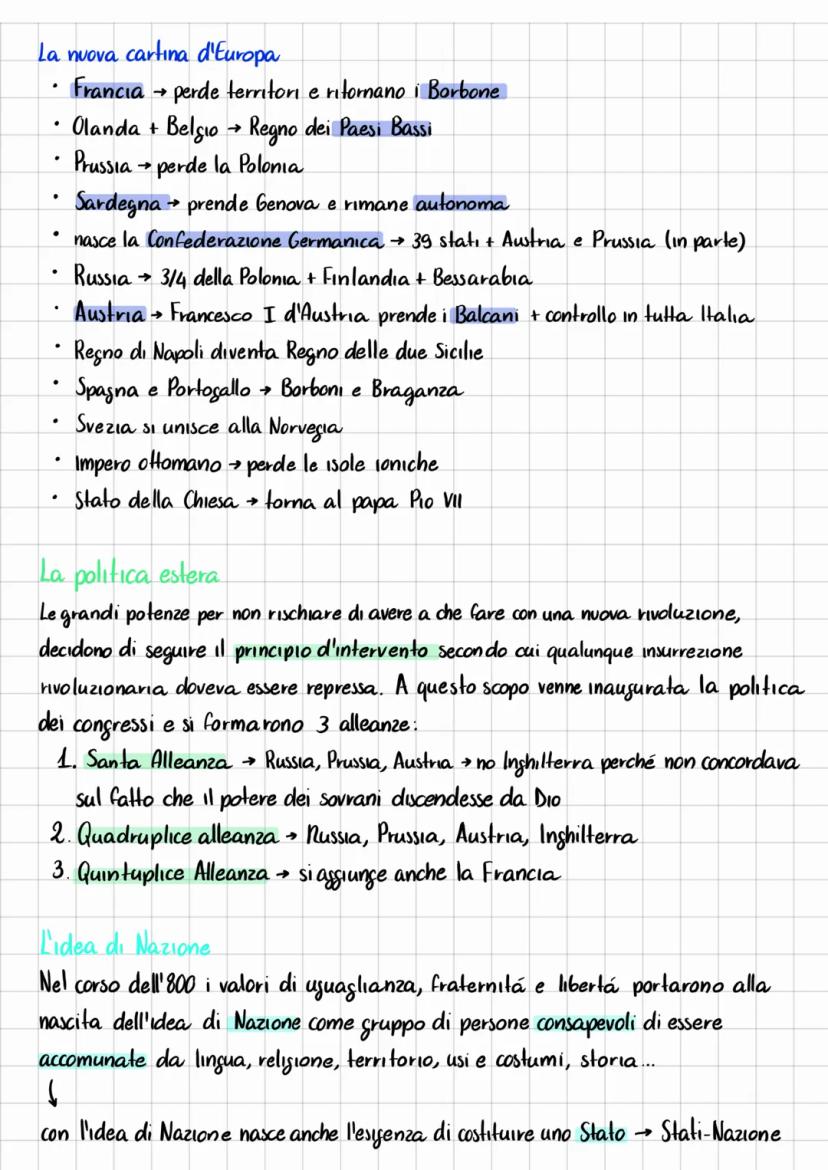 La nuova cartina d'Europa
• Francia → perde territori e ritornano i Borbone
• Olanda + Belgio → Regno dei Paesi Bassi
• Prussia → perde la Polonia
• Sardegna → prende Genova e rimane autonoma
• nasce la Confederazione Germanica → 39 stati + Austria e Prussia (in parte)
• Russia → 3/4 della Polonia + Finlandia + Bessarabia
• Austria → Francesco I d'Austria prende i Balcani + controllo in tutta Italia
• Regno di Napoli diventa Regno delle due Sicilie
• Spagna e Portogallo → Borboni e Braganza
• Svezia si unisce alla Norvegia
• Impero ottomano → perde le isole ioniche
• Stato della Chiesa → torna al papa Pio VII
La politica estera
Le grandi potenze per non rischiare di avere a che fare con una nuova rivoluzione,
decidono di seguire il principio d'intervento secondo cui qualunque insurrezione
rivoluzionaria doveva essere repressa. A questo scopo venne inaugurata la politica
dei congressi e si formarono 3 alleanze:
1. Santa Alleanza → Russia, Prussia, Austria → no Inghilterra perché non concordava
sul fatto che il potere dei sovrani discendesse da Dio
2. Quadruplice alleanza → Russia, Prussia, Austria, Inghilterra
3. Quintuplice Alleanza → si aggiunge anche la Francia
L'idea di Nazione
Nel corso dell'800 i valori di uguaglianza, fraternitá e libertá portarono alla
nascita dell'idea di Nazione come gruppo di persone consapevoli di essere
accomunate da lingua, religione, territorio, usi e costumi, storia...
↓
con l'idea di Nazione nasce anche l'esigenza di costituire uno Stato → Stati-Nazione